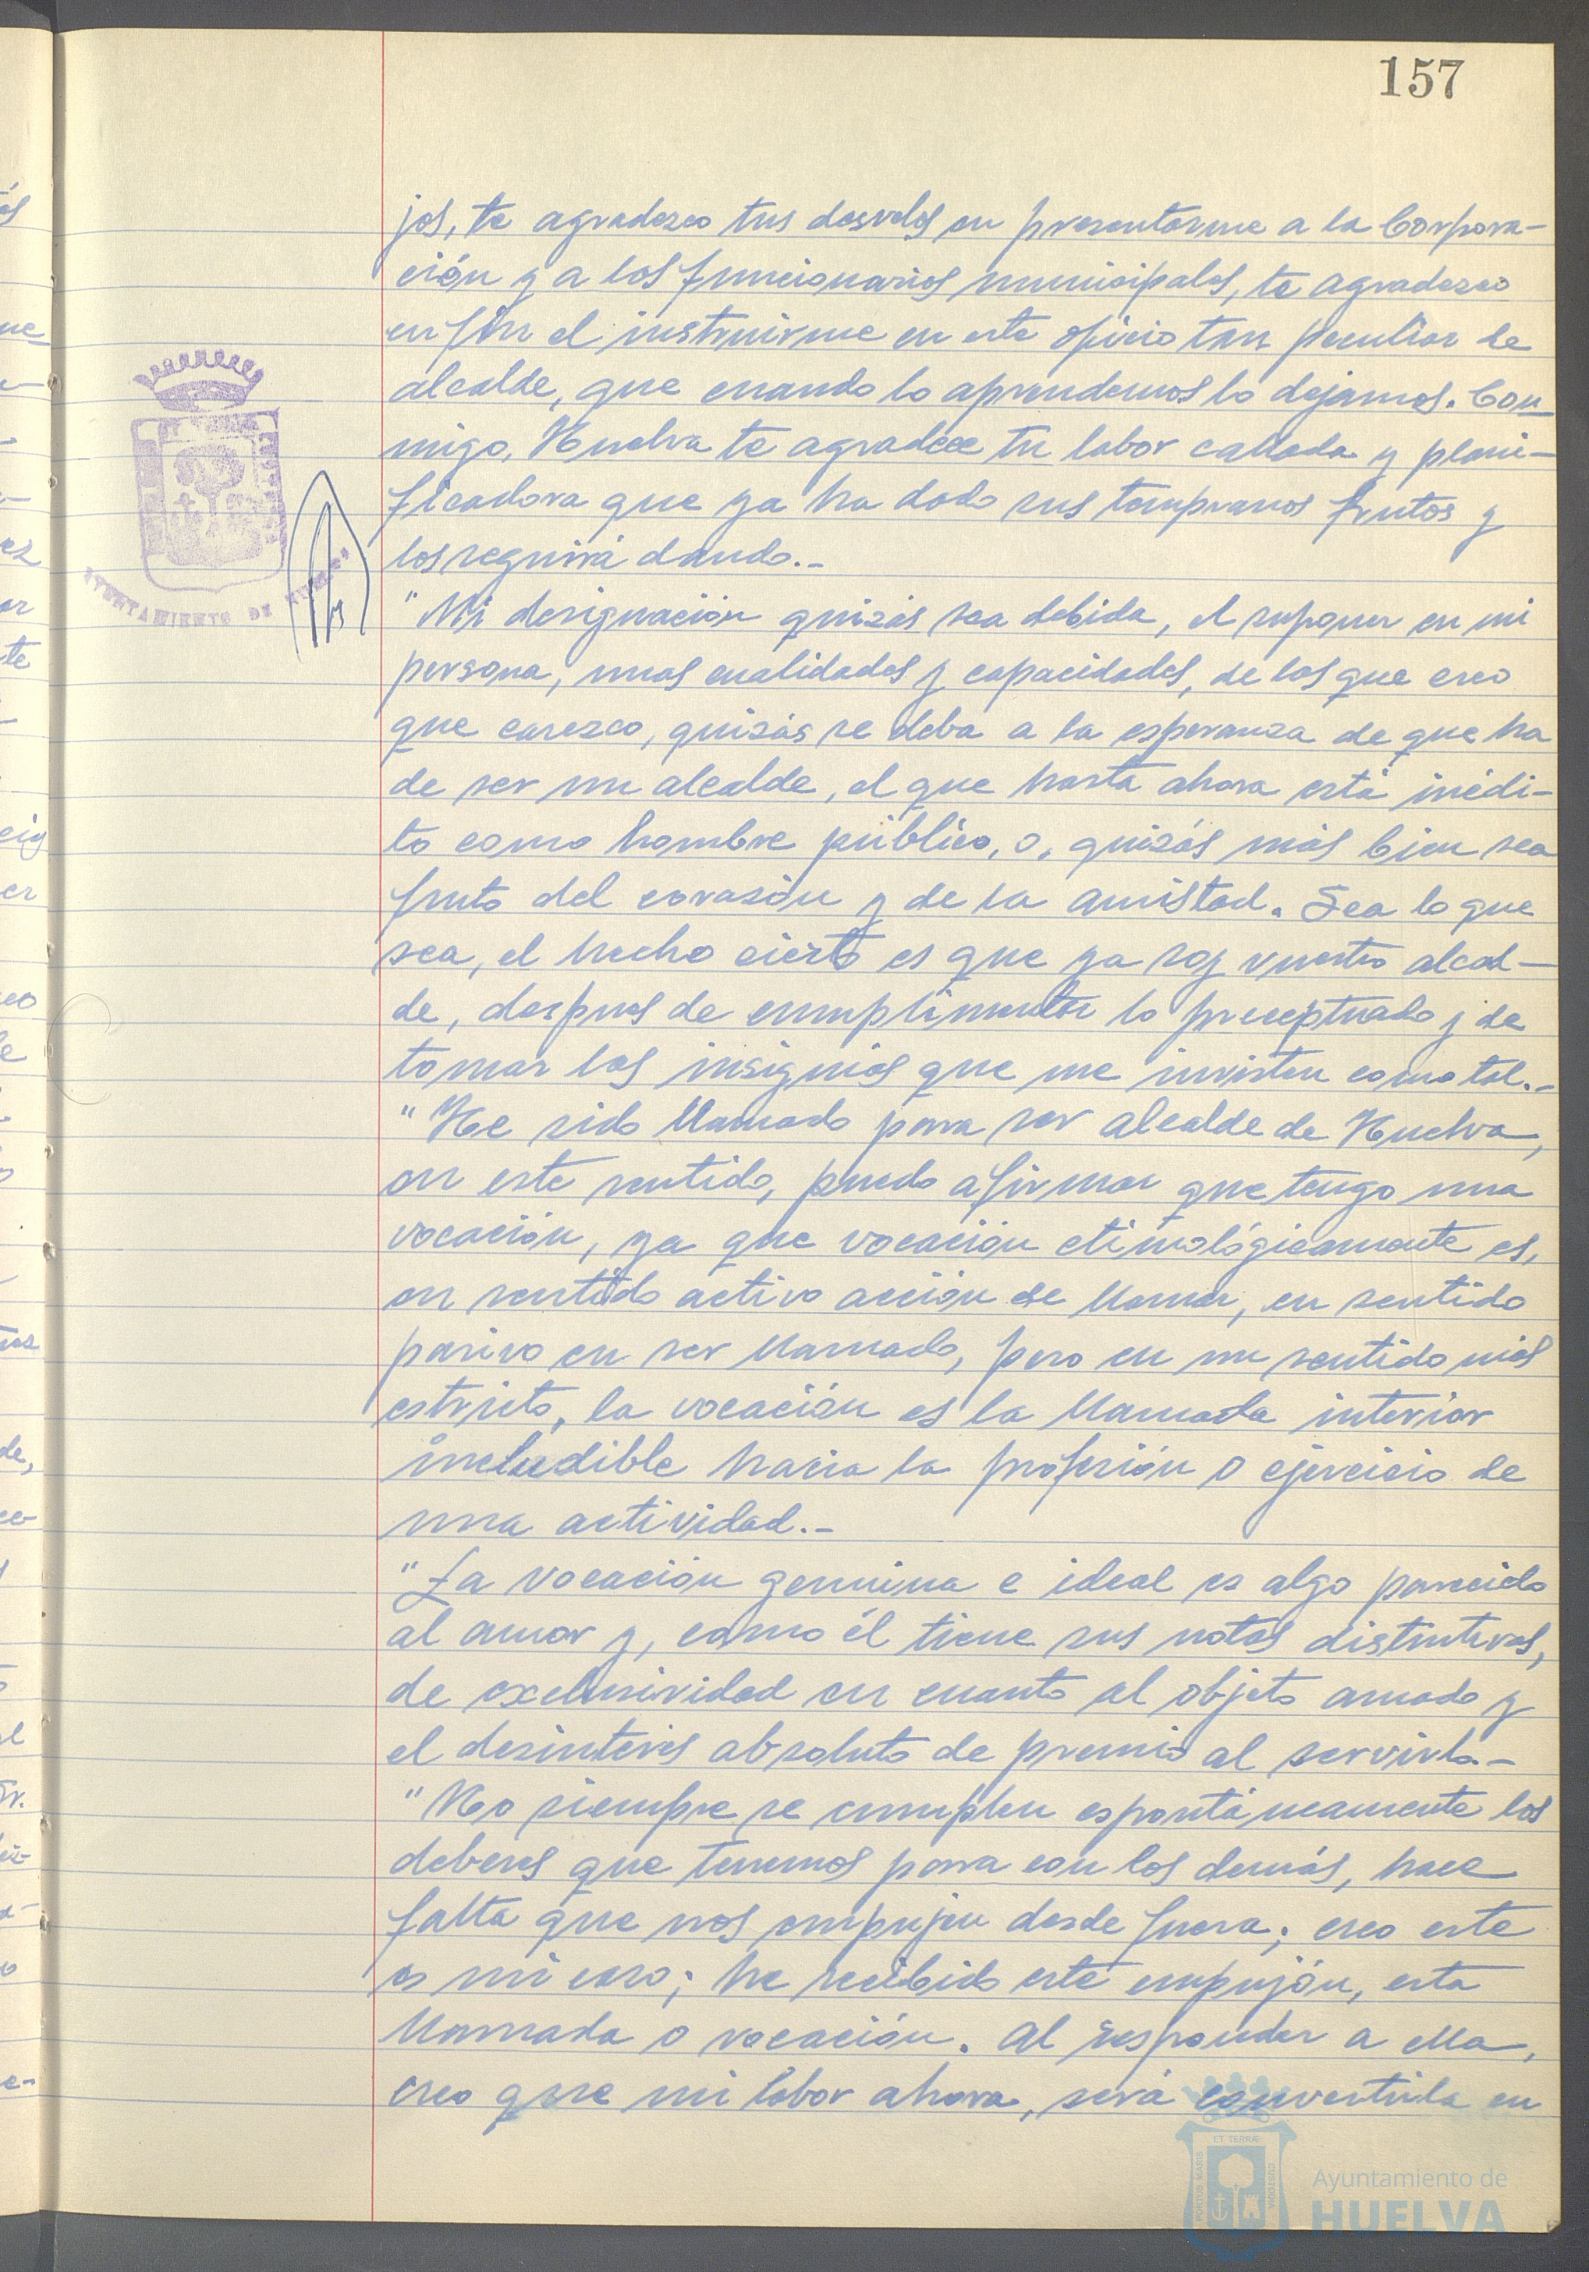 157
jos, te agradezco tus desvelos en presentarme a la Corpora-
ción y a los funcionarios municipales, te agradezco
en fin el instruirme en este oficio tan peculiar de
alcalde, que cuando lo aprendemos lo dejamos. Con-
migo, Huelva te agradece tu labor callada y plani-
ficadora que ya ha dado sus tempranos frutos y
los seguirá dando.-
"Mi designación quizás sea debida, el suponer en mi
persona, unas cualidades y capacidades, de las que creo
que carezco, quizás se deba a la esperanza de que ha
de ser un alcalde, el que hasta ahora está inédi-
to como hombre público, o, quizás más bien sea
fruto del corazón y de la amistad. Sea lo que
sea, el hecho cierto es que ya soy vuestro alcal-
de, despues de cumplimentar lo preceptuado y de
tomar las insignias que me invisten como tal.-
"He sido llamado para ser alcalde de Huelva,
en este sentido, puedo afirmar que tengo una
vocación, ya que vocación etimológicamente es,
en sentido activo acción de llamar, en sentido
pasivo en ser llamado, pero en un sentido más
estricto, la vocación es la llamada interior
ineludible hacia la profesión o ejercicio de
una actividad.-
"La vocación genuina e ideal es algo parecido
al amor y, como él tiene sus notas distintivas,
de exclusividad en cuanto al objeto amado y
el desinterés absoluto de premio al servirlo.-
"No siempre se cumplen espontáneamente los
deberes que tenemos para con los demás, hace
falta que nos empujen desde fuera; creo este
es mi caso; he recibido este empujón, esta
llamada o vocación. Al responder a ella,
creo que mi labor ahora, será convertirla en
AYUNTAMIENTO DE HUELVA
Ayuntamiento de
HUELVA